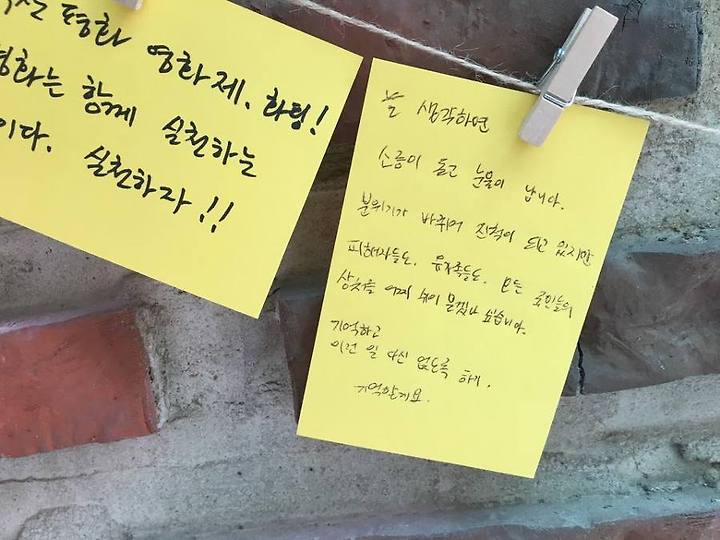 평화 영화제, 화팅!
평화는 함께 실천하는
이다. 실천하자!!
늘 생각하면
소름이 돋고 눈물이 납니다.
분위기가 바뀌어 진척이 되고 있지만
피해자들도, 유가족들도, 모든 국민들의
상처를 어찌 씻어 싶습니다.
기억하고
이런 일 다신 없도록 하기.
기억할게요.